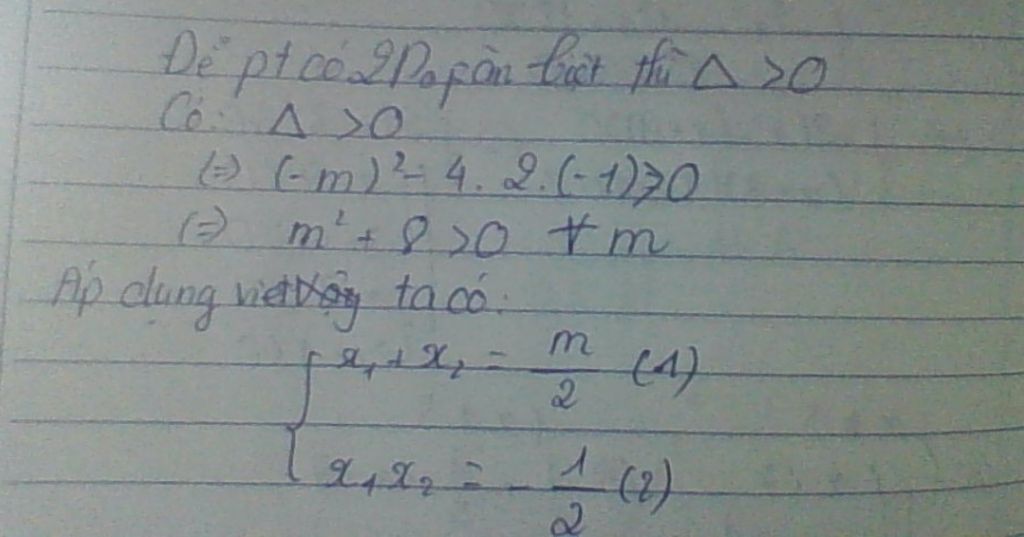 Để pt có 2 No pân biệt thì Δ > 0
Có: Δ > 0
(=) (-m)² - 4. 2. (-1) > 0
(=) m² + 8 > 0 ∀ m
Áp dụng viet ta có:
x₁ + x₂ = m/2 (1)
x₁ x₂ = - 1/2 (2)